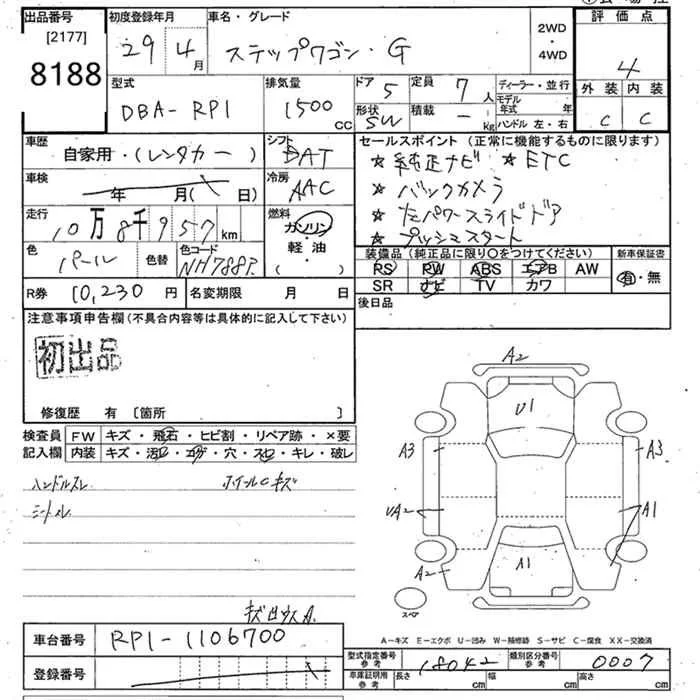 出品番号 初度登録年月 車名・グレード 評価点
[2177]
8188
29 4月 ステップワゴン・G 2WD・4WD 4
型式 排気量 ドア 5 定員 7人 ディーラー・並行 外装 内装
DBA-RP1 1500cc 形状 SW 積載 - kg モデル年式 年 C C
ハンドル 左・右
車歴 シフト セールスポイント (正常に機能するものに限ります)
自家用・(レンタカー) DAT ★純正ナビ ★ETC
車検 年 月( 日) 冷房 AAC ★バックカメラ
走行 10万8千957km 燃料 ガソリン・軽油( ・ ) ★左パワースライドドア
★プッシュスタート
色 パール 色替 色コード NH788P
装備品(純正品に限り○をつけてください) 新車保証書
RS PW ABS エアB AW 有・無
SR ナビ TV カワ
R券 10,230円 名変期限 月 日 後日品
注意事項申告欄(不具合内容等は具体的に記入して下さい)
初出品
修復歴 有 [箇所 ]
検査員 FW キズ・飛石・ヒビ割・リペア跡・×要
記入欄 内装 キズ・汚レ・コゲ・穴・スレ・キレ・破レ
ハンドルスレ ホイールCキズ
シートスレ
A2
U1
A3 A3
UA2 A1
A1
A2
スペア
A-キズ E-エクボ U-凹み W-補修跡 S-サビ C-腐食 XX-交換済
車台番号 RP1-1106700
型式指定番号 参考 18042 類別区分番号 参考 0007
登録番号
車庫証明用 参考 長さ cm 幅 cm 高さ cm